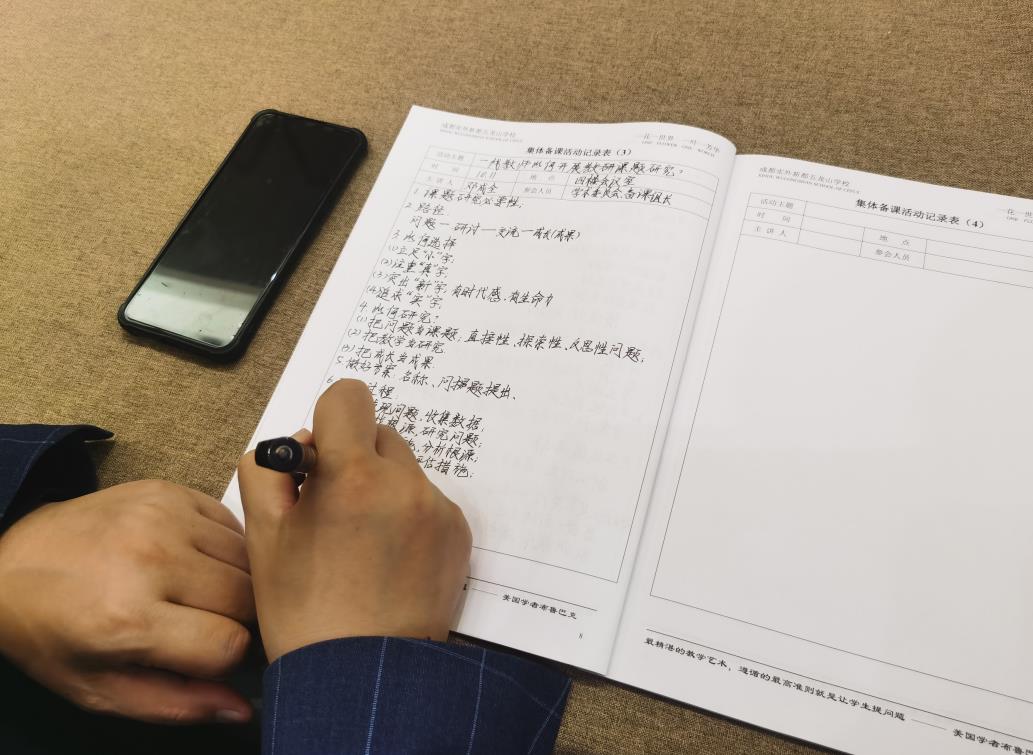 成都东外新都五龙山学校
一花一世界 一叶一万年
ONE FLOWER ONE WORLD
集体备课活动记录表（3）
活动主题 一线教师如何开展教研课题研究？
时 间 地 点 四楼会议室
主 讲 人 参会人员 学术委员会、备课组长
1. 课题研究必要性：
2. 路径
问题—研讨—交流—成长(成果)
3. 如何选择
(1)立足“小”字；
(2)注重“真”字；
(3)突出“新”字，有时代感，有生命力
(4)追求“实”字；
4. 如何研究？
(1) 把问题当课题；直接性、探索性、反思性问题；
(2) 把教学当研究
(3) 把成长当成果.
5. 做好方案：名称、问题提出、
6 过程：
现问题，收集数据；
源，研究问题；
分析根源；
评估措施；
美国学者布鲁巴克
8
成都东外新都五龙山学校
集体备课活动记录表（4）
活动主题
时 间 地 点
主 讲 人 参会人员
最精湛的教学艺术，遵循的最高准则就是让学生提问题
美国学者布鲁巴